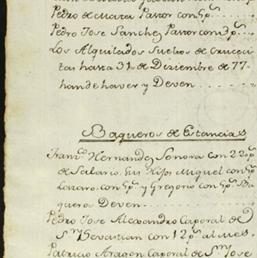 Pedro de Mata Pastor con 5ps
Pedro Jose Sanchez Pastor con 5ps
Los Alquilados Sueltos de Cruceci
tas hasta 31 de Diziembre de 77
han de haver y Deven
Baqueros de Estancias
Franco Hernandez Sonora con 22ps
de Salario. Su Hijo Miguel con 6ps
Lazaro con 6ps y Gregorio con 8ps Ba
queros Deven
Pedro Jose Alexandro Caporal de
Sn Sevastian con 12ps al mes
Patricio Aragon Caporal de Sn Jose